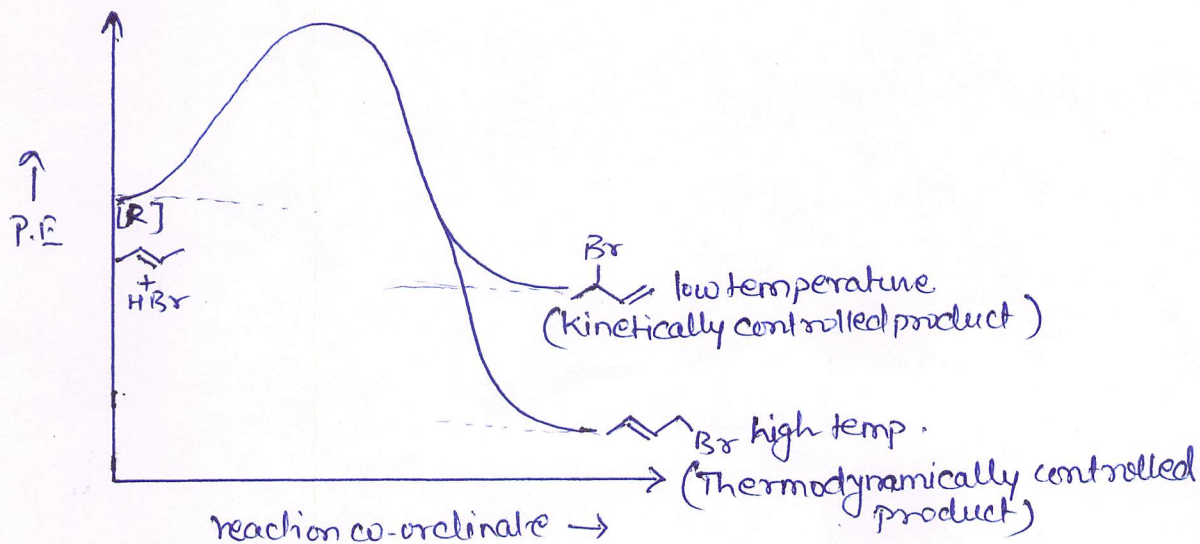 ↑
P.E
[R]
+
HBr
Br
low temperature
(Kinetically controlled product)
Br high temp.
(Thermodynamically controlled
product)
reaction co-ordinate →